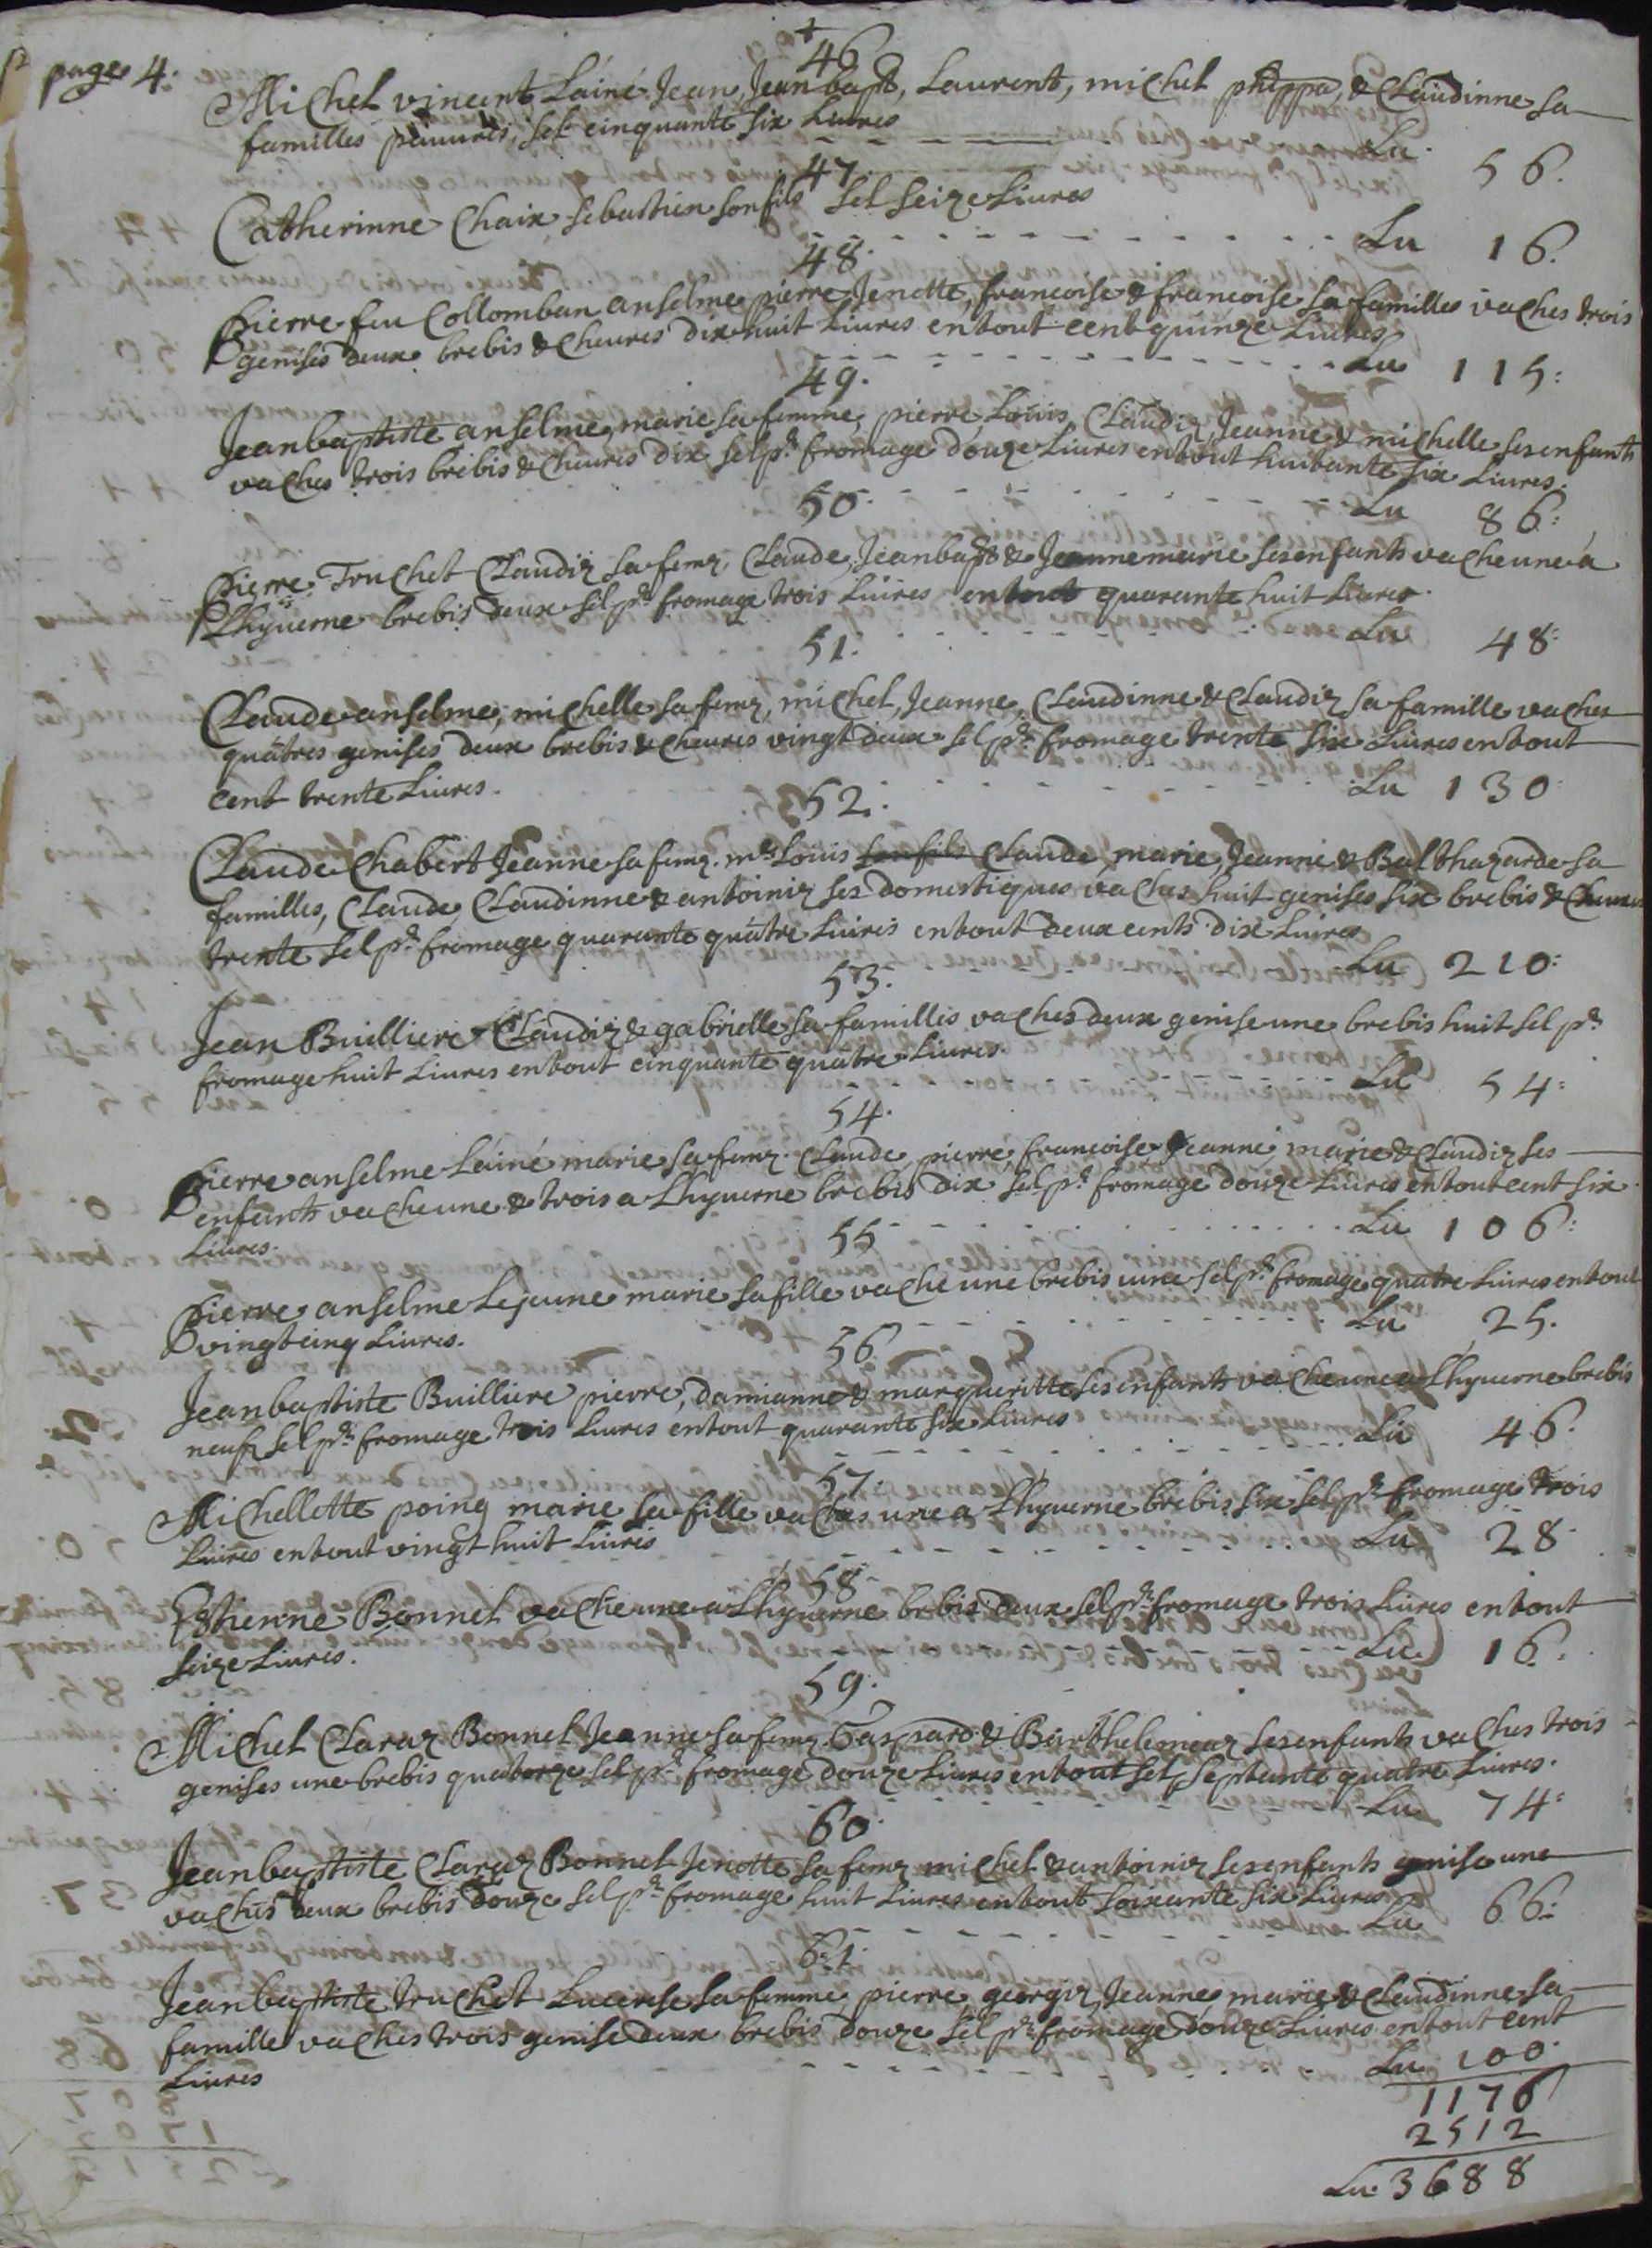 page 4.
46
Michel vincent Lainé Jean, Jean bapt, Laurent, michel phippa, & Claudinne sa
familles pauures, sel cinquante six Liures
Lu. 56.
47
Catherinne Chaix sebastien son fils sel seize Liures
Lu 16.
48.
pierre feu Collomban anselme pierre Jenette, francoise & francoise sa familles vaches trois
genises deux brebis & cheures dix huit Liures en tout cent quinze Liures
Lu 115:
49.
Jean baptiste anselme, marie sa femme, pierre Louis, Claudiz, Jeanne & michelle ses enfants
vaches trois brebis & cheures dix sel pr. fromage douze Liures en tout huitante six Liures.
Lu 86:
50.
pierre Truchet Claudiz sa femz, Claude, Jean bapt & Jeanne marie ses enfants vache une à
Lhyuerne brebis deux sel pr. fromage trois Liures en tout quarante huit Liures.
Lu 48:
51.
Claude anselme, michelle sa femz, michel, Jeanne, Claudinne & Claudiz sa famille vaches
quatres genises deux brebis & cheures vingt deux sel pr. fromage trente six Liures en tout
cent trente Liures.
Lu 130.
52.
Claude Chabert Jeanne sa femz. mre Louis son fils Claude, marie, Jeanne & Balthazarde sa
familles, Claude, Claudinne & antoiniz ses domestiques vaches huit genises six brebis & cheures
trente sel pr. fromage quarante quatre Liures en tout deux cents dix Liures
Lu 210:
53.
Jean Buillierc Claudiz & gabrielle sa familles vaches deux genise une brebis huit sel pr.
fromage huit Liures en tout cinquante quatre Liures.
Lu 54:
54.
pierre anselme Lainé marie sa femz. Claude, pierre, francoise Jeanne marie & Claudiz ses
enfants vache une & trois a Lhyuerne brebis dix sel pr. fromage douze Liures en tout cent six
Liures.
Lu 106:
55
pierre anselme Le jeune marie sa fille vache une brebis une sel pr. fromage quatre Liures en tout
vingt cinq Liures.
Lu 25.
56.
Jean baptiste Buillierc pierre, damianne & margueritte ses enfants vache une a Lhyuerne brebis
neufz sel pr. fromage trois Liures en tout quarante six Liures
Lu 46.
57.
Michellette poinq marie sa fille vaches une a Lhyuerne brebis six sel pr. fromage trois
Liures en tout vingt huit Liures
Lu 28.
58.
Estienne Bonnel vache une a Lhyuerne brbis deux sel pr. fromage trois Liures en tout
seize Liures.
Lu. 16.
59.
Michel Claraz Bonnel Jeanne sa femz Gaspard & Barthelemeaz ses enfants vaches trois
genises une brebis quatorze sel pr. fromage douze Liures en tout sel septante quatre Liures.
Lu 74:
60.
Jean baptiste Claraz Bonnel Jenette sa femz michel & antoiniz ses enfants genise une
vaches deux brebis douze sel pr. fromage huit Liures en tout soixante six Liures
Lu 66:
61.
Jean baptiste truchet Lucresse sa femme, pierre, georgiz, Jeanne, marie & Claudinne sa
famille vaches trois genise deux brebis douze sel pr. fromage douze Liures en tout cent
Liures
Lu 100.
1176
2512
Lu. 3688